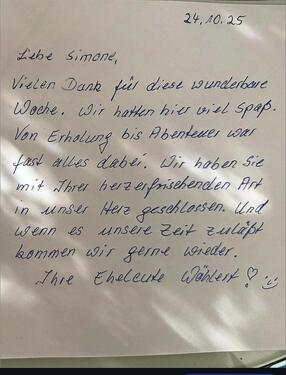 24.10.25
Liebe Simone,
Vielen Dank für diese wunderbare
Woche. Wir hatten hier viel Spaß.
Von Erholung bis Abenteuer war
fast alles dabei. Wir haben Sie
mit Ihrer herzerfrischenden Art
in unser Herz geschlossen. Und
wenn es unsere Zeit zuläßt
kommen wir gerne wieder.
Ihre Eheleute Wählert